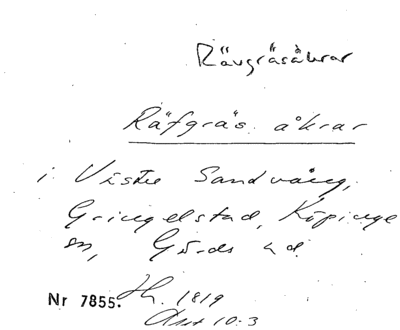 Rävgräsåkrar
Räfgräs åkrar
i Vistu Sandvång,
Gringelstad, Köpinge
sn, Gärds hd.
Nr 7855. Hh. 1819
Akt 10:3